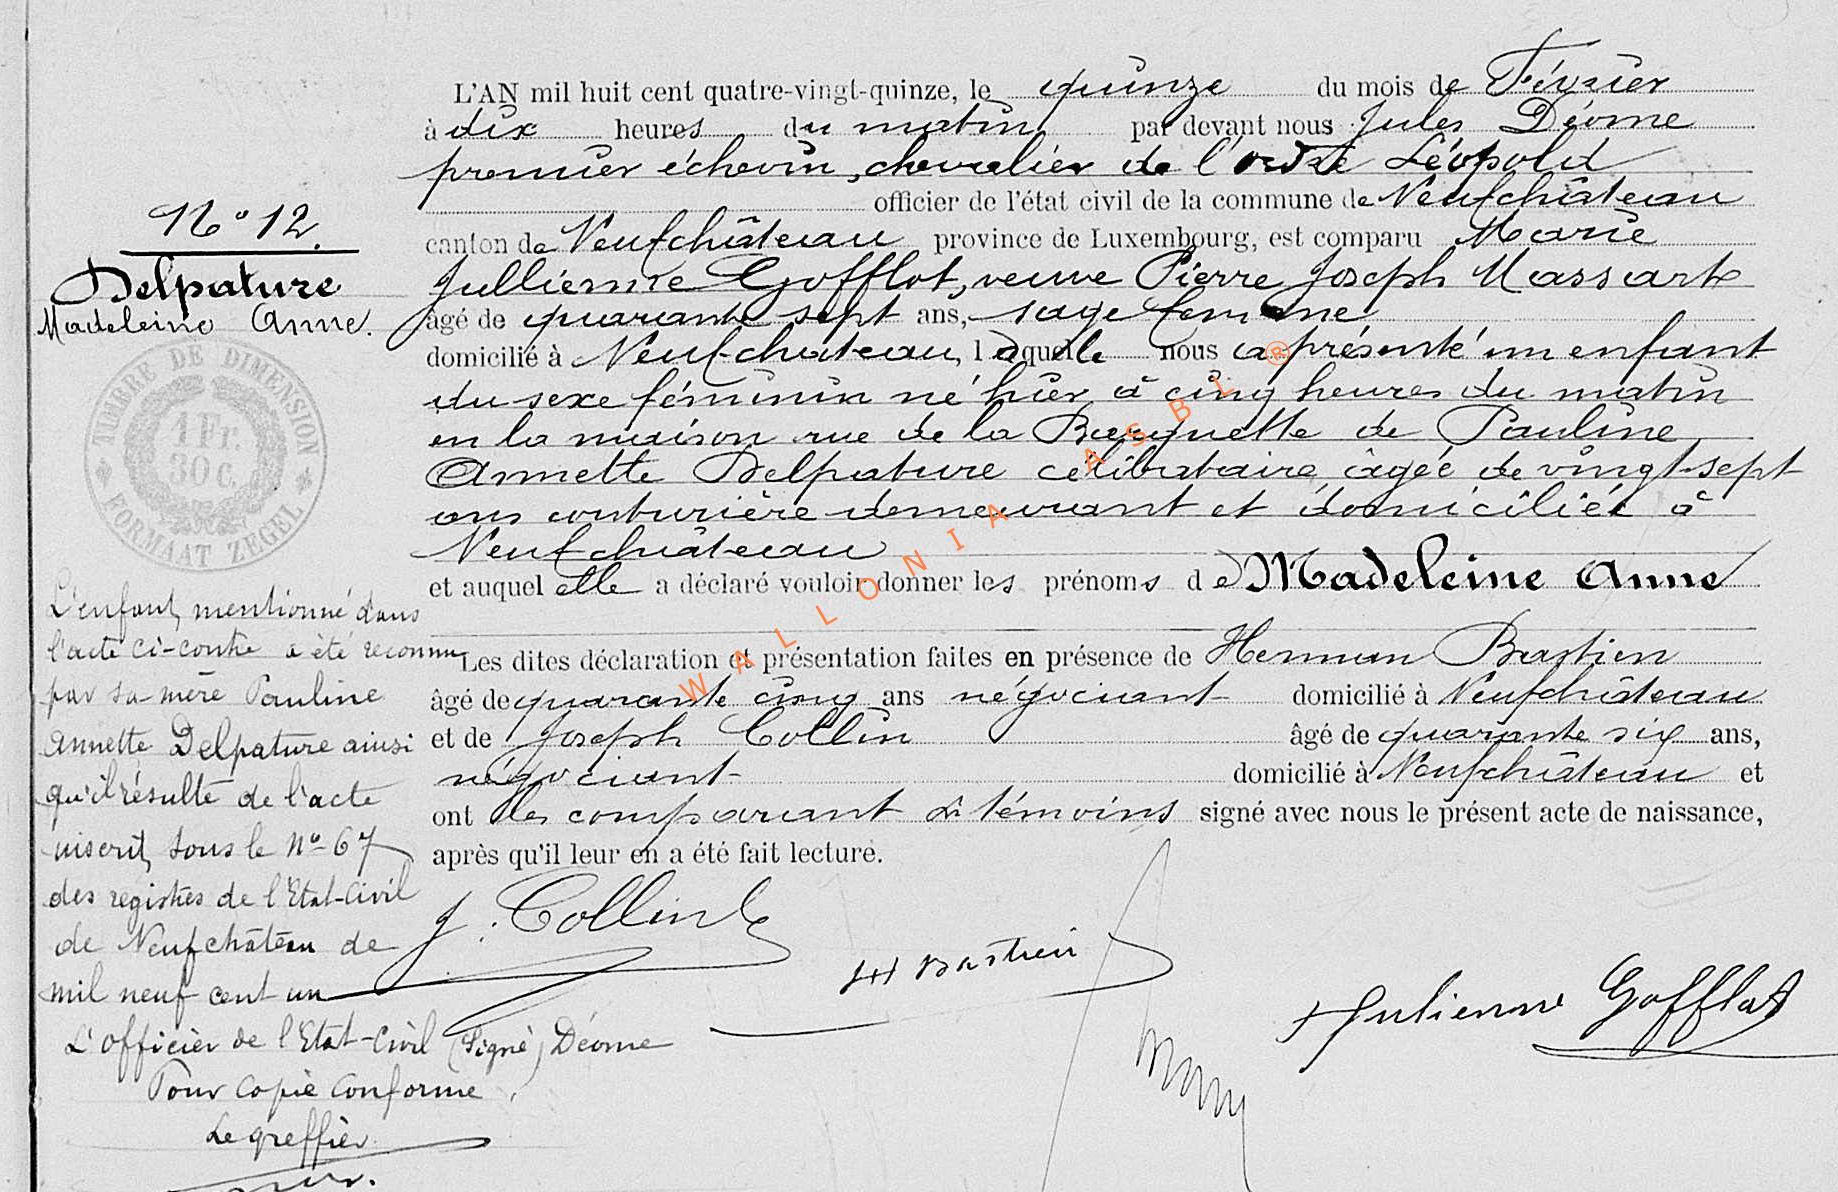 L'AN mil huit cent quatre-vingt-quinze, le quinze du mois de Février
à dix heures du matin par devant nous Jules Déome
premier échevin, chevalier de l'ordre Léopold
officier de l'état civil de la commune de Neufchâteau
canton de Neufchâteau province de Luxembourg, est comparu Marie
Jullienne Gofflot, veuve Pierre Joseph Massart
âgé de quarante sept ans, sage femme
domicilié à Neufchateau, laquelle nous a présenté un enfant
du sexe féminin né hier à cinq heures du matin
en la maison rue de la Banquette de Pauline
Annette Delpature célibataire âgée de vingt-sept
ans couturière demeurant et domiciliée à
Neufchâteau
et auquel elle a déclaré vouloir donner les prénoms de Madeleine Anne
Les dites déclaration et présentation faites en présence de Herman Bastien
âgé de quarante cinq ans négociant domicilié à Neufchâteau
et de Joseph Collin âgé de quarante six ans,
négociant domicilié à Neufchâteau et
ont les comparant & témoins signé avec nous le présent acte de naissance,
après qu'il leur en a été fait lecture.
J. Collin
H Bastien
Julienne Gofflot
No 12.
Delpature
Madeleine Anne.
TIMBRE DE DIMENSION
1 Fr.
30 c.
FORMAAT ZEGEL
L'enfant mentionné dans
l'acte ci-contre a été reconnu
par sa mère Pauline
Annette Delpature ainsi
qu'il résulte de l'acte
inscrit sous le No 67
des registres de l'Etat-Civil
de Neufchâteau de
mil neuf cent un
L'officier de l'Etat-Civil (Signé) Déome
Pour copie conforme,
Le greffier
WALLONIA ASBL ®